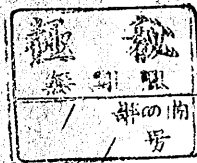 極秘
無期限
/ 部の内
/ 号